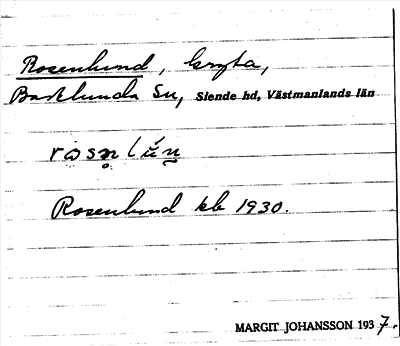 Rosenlund, kryta,
Barklunda Su, Siende hd, Västmanlands län
Rosenlund kb 1930.
MARGIT JOHANSSON 1937.